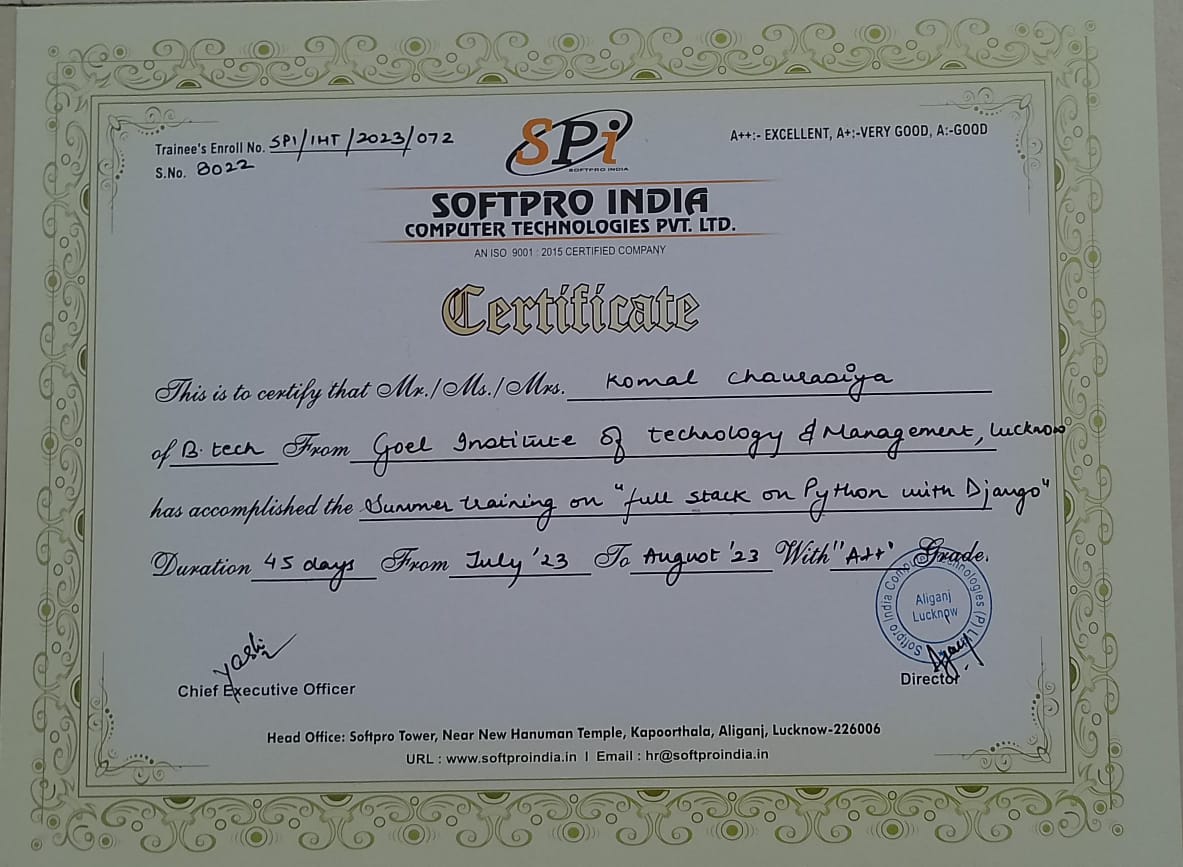 Trainee's Enroll No. SPI/IHT/2023/072
S.No. 8022
SPi
SOFTPRO INDIA
A++:- EXCELLENT, A+:-VERY GOOD, A:-GOOD
SOFTPRO INDIA
COMPUTER TECHNOLOGIES PVT. LTD.
AN ISO 9001 : 2015 CERTIFIED COMPANY
Certificate
This is to certify that Mr./Ms./Mrs. Komal Chaurasiya
of B.tech From Goel Institute of technology & Management, Lucknow
has accomplished the Summer training on "full stack on Python with Django"
Duration 45 days From July '23 To August '23 With "A++" Grade.
Softpro India Computer Technologies (P) L
Aliganj
Lucknow
Yashi
Chief Executive Officer
Director
Head Office: Softpro Tower, Near New Hanuman Temple, Kapoorthala, Aliganj, Lucknow-226006
URL : www.softproindia.in I Email : hr@softproindia.in